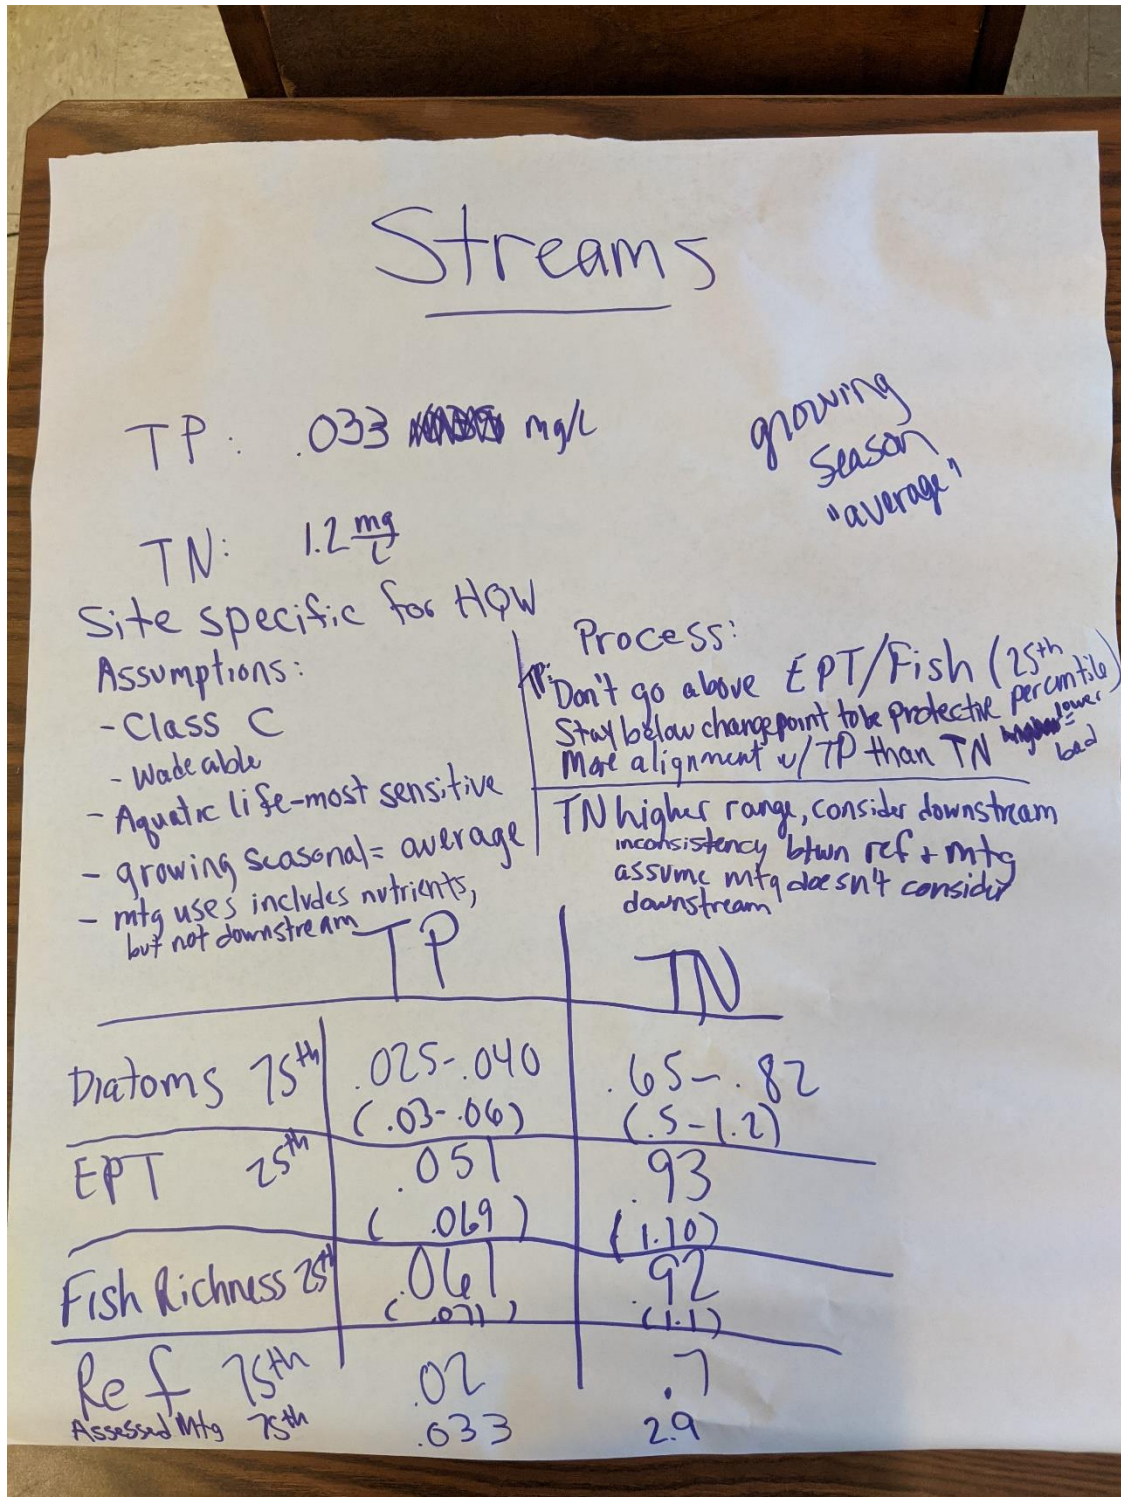 Streams
TP: .033 mg/L
growing
season
"average"
TN: 1.2 mg/L
Site specific for HQW
Assumptions:
- Class C
- Wadeable
- Aquatic life-most sensitive
- growing seasonal = average
- mtg uses includes nutrients,
but not downstream
Process:
TP: Don't go above EPT/Fish (25th percentile)
Stay below changepoint to be protective
lower = bad
More alignment w/ TP than TN
TN higher range, consider downstream
inconsistency btwn ref + mtg
assume mtg doesn't consider
downstream
TP TN
Diatoms 75th .025-.040 .65-.82
(.03-.06) (.5-1.2)
EPT 25th .051 .93
(.069) (1.10)
Fish Richness 25th .061 .92
(.071) (1.1)
Ref 75th .02 .7
Assessed Mtg 75th .033 2.9